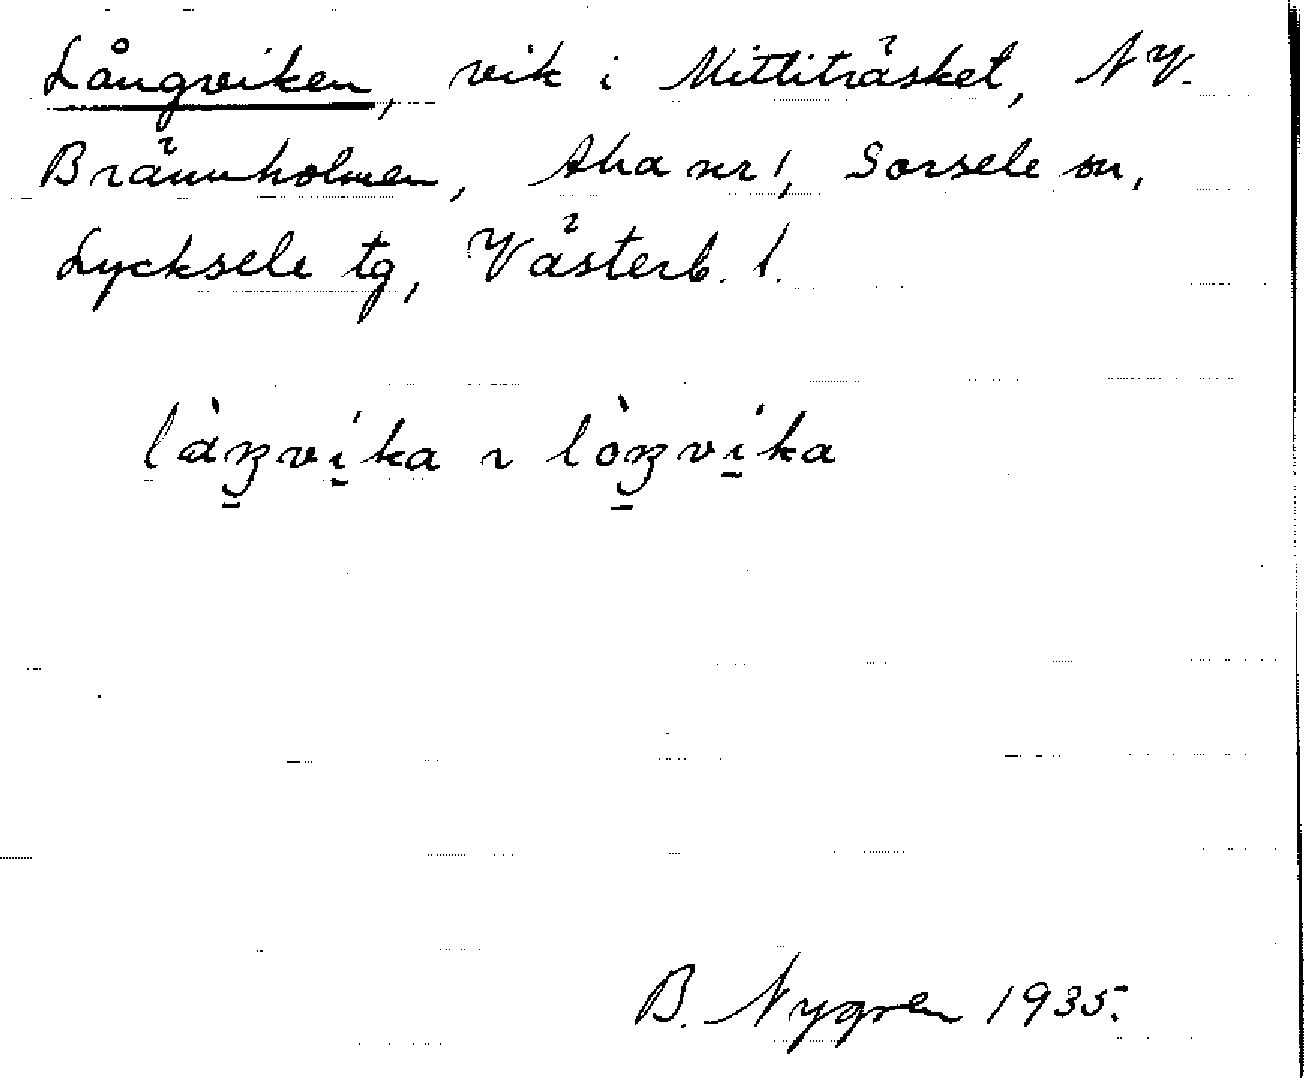 Långviken, vik i Mittiträsket, NV.
Brännholmen, Aha nr 1, Sorsele sn,
Lycksele tg, Västerb. l.
làŋvi̱ka ~ lòŋvi̱ka
B. Nygren 1935.